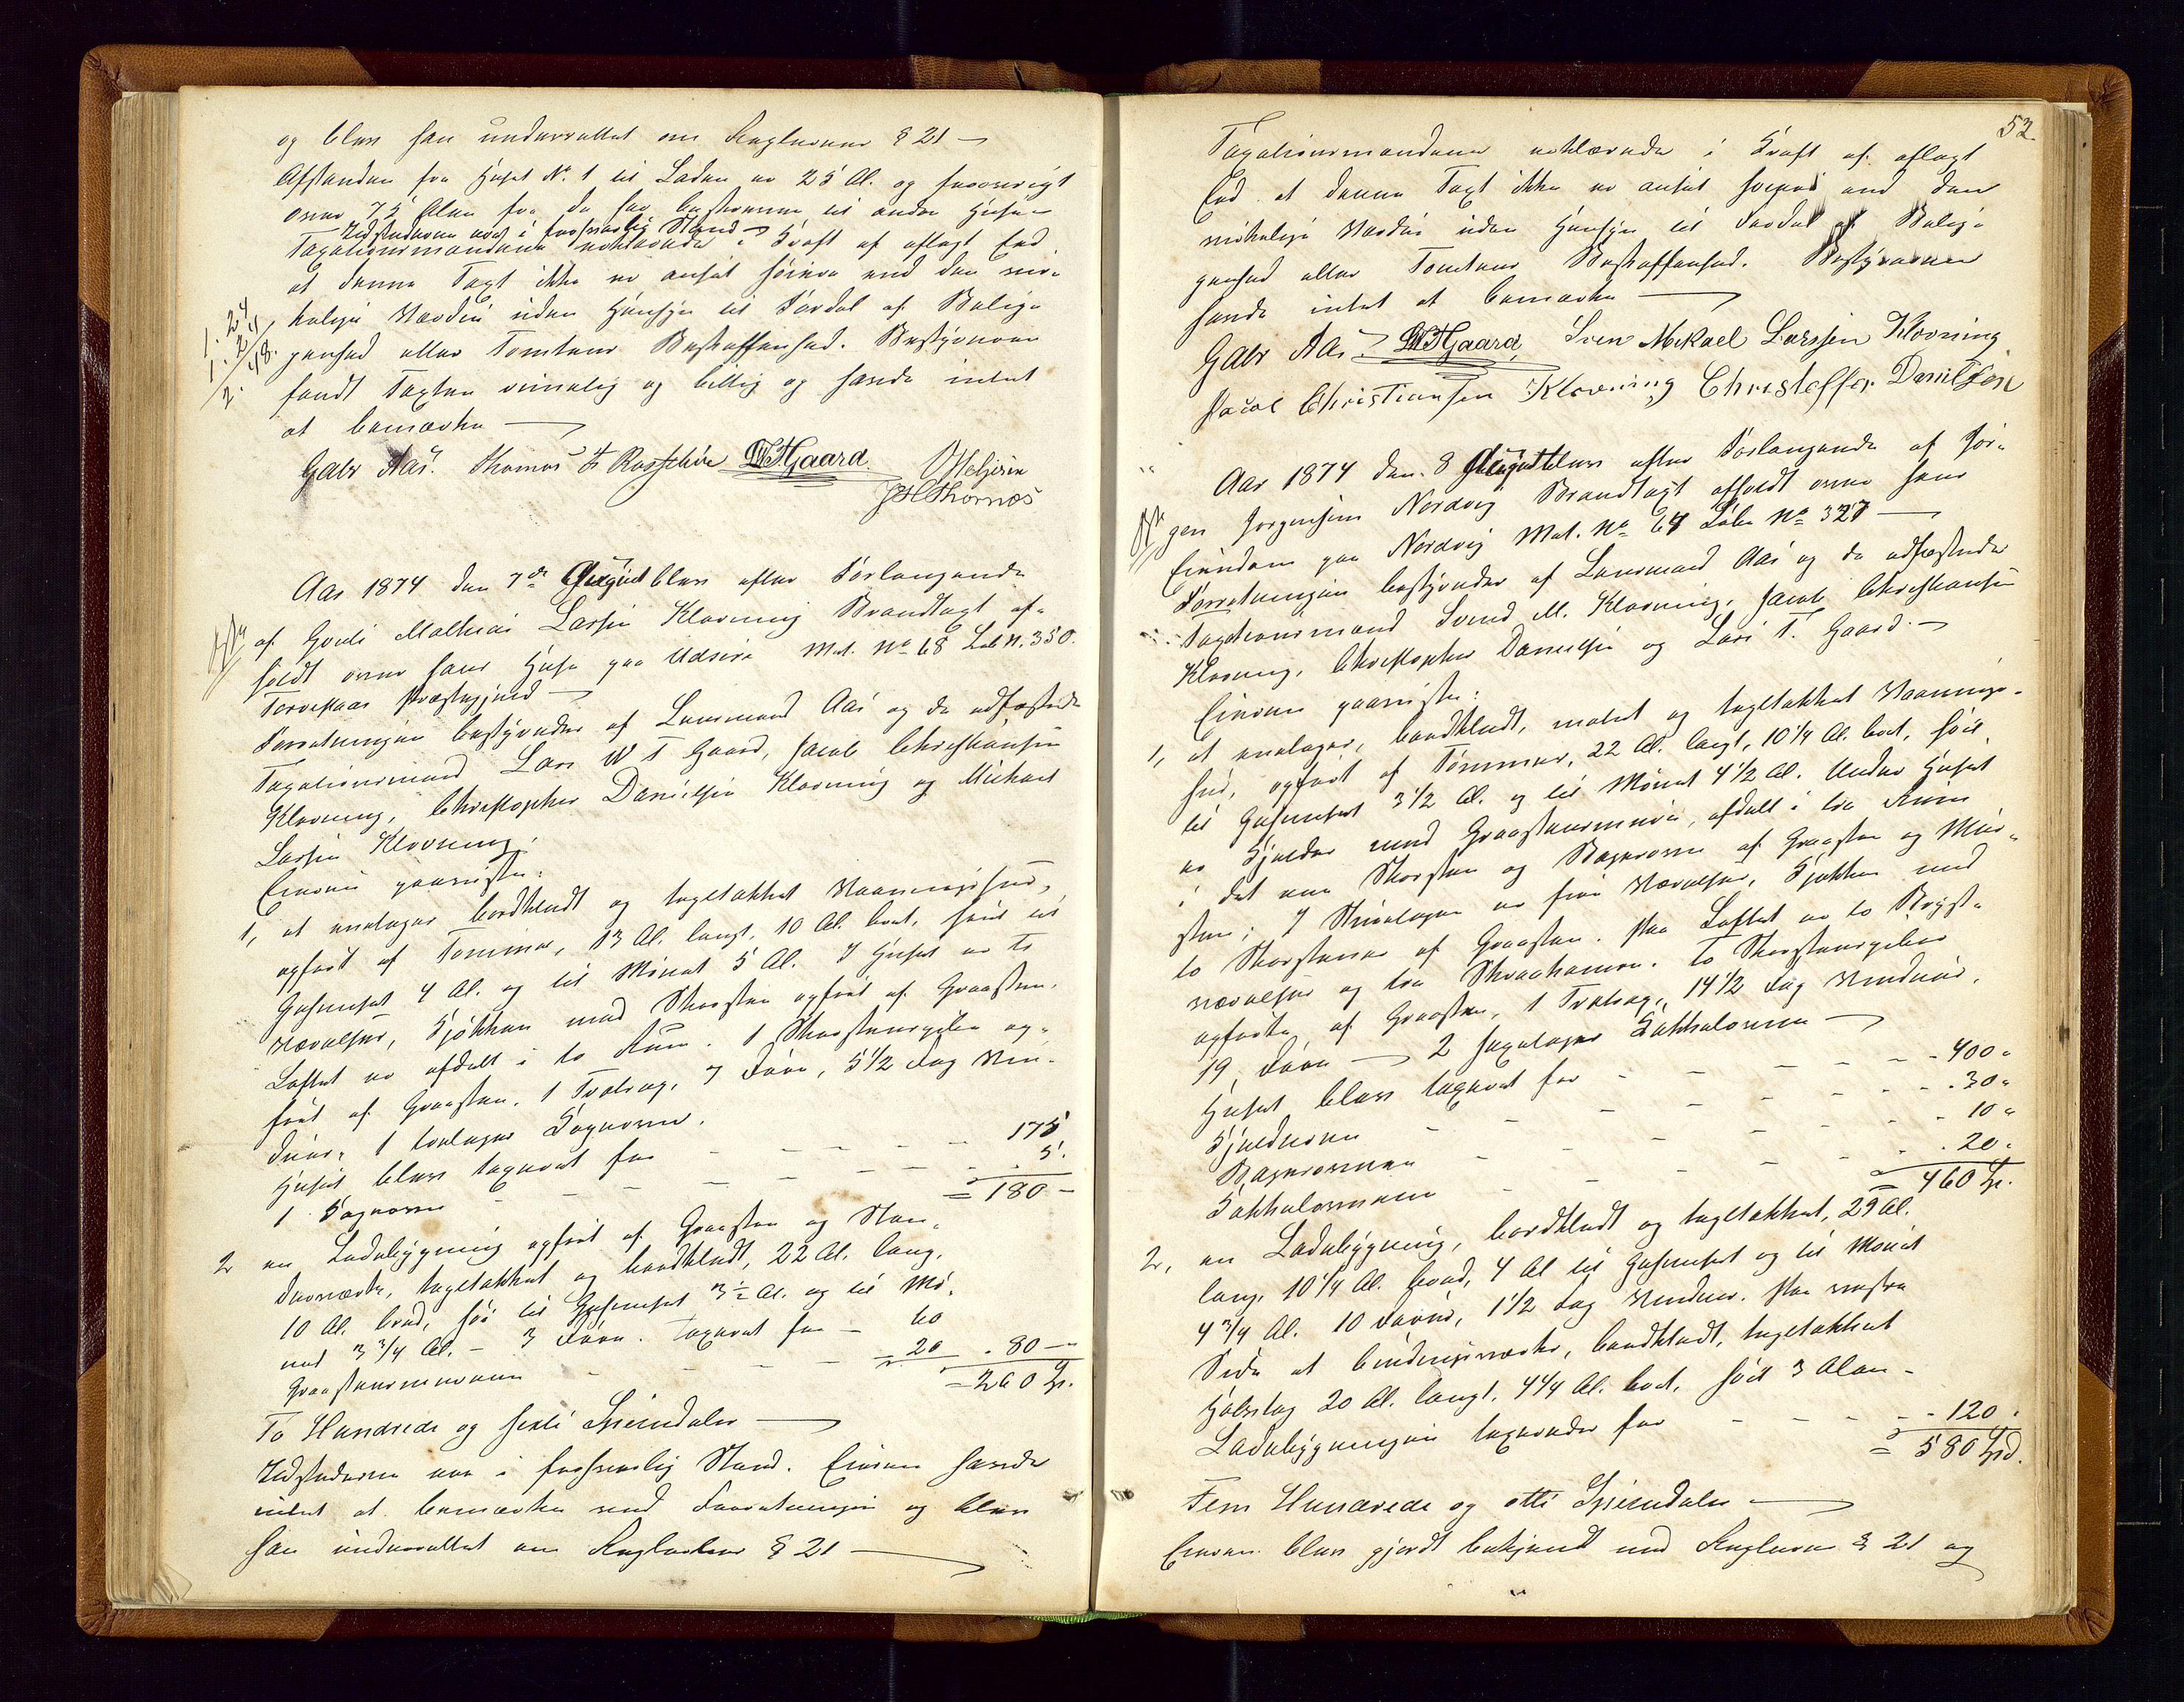 og blev han underrettet om Reglerne § 21
Afstanden fra Huset No. 1 til Laden er 25 Al. og forøvrigt
over 75 Alen fra de her beskrevne til andre Huse
Ildstederne var i forsvarlig Stand
Taxationsmændene erklærede i Kraft af aflagt Eed
at denne Taxt ikke er ansat høiere end den vir-
kelige Værdie uden Hensyn til Fordel af Belig-
genhed eller Tomtens Beskaffenhed. Bestyreren
fandt Taxten rimelig og billig og havde intet
at bemærke
Gabr Aas. Thomas
LWTGaard
JHThornæs
Aar 1874 den 7de August blev efter Forlangende
af Gouli Mathias Larsen Klovning Brandtaxt af-
holdt over hans Huse paa Udsire Mat. No 68 Lb N. 350.
Torvestad Præstegjeld
Forretningen bestyredes af Lensmand Aas og de udfæstede
Taxationsmænd Lars W T Gaard, Jacob Christiansen
Klovning, Christopher Danielsen Klovning og Michael
Larsen Klovning.
Eieren paaviste:
1, et enetages bordklædt og tagltækket Vaaningshus,
opført af Tømmer, 13 Al. langt, 10 Al. bredt, høit til
Gesimset 4 Al. og til Mønet 5 Al. I Huset er to
Værelser, Kjøkken med Skorsten opført af Graasten.
Loftet er afdelt i to Rum. 1 Skorstenspibe op-
ført af Graasten. 1 Trætrap, 7 Døre, 5 1/2 Fag Vin-
duer, 1 toetages Kogeovn.
Huset blev taxeret for - - - 175
1 Kogeovn - - - - 5.
= 180 -
2 en Ladebygning opført af Graasten og Stav-
værk, tagltækket og bordklædt, 22 Al. lang,
10 Al. bred, høi til Gesimset 3 1/2 Al. og til Mø-
net 3 3/4 Al. - 3 Døre. Taxeret for - 60
Graastensmurene - - - 20 - 80 -
= 260 Sp.
To Hundrede og sexti Speciedaler
Ildstederne var i forsvarlig Stand. Eieren havde
intet at bemærke med Forretningen og blev
han underrettet om Reglerne § 21
52.
Taxationsmændene erklærede i Kraft af aflagt
Eed at denne Taxt ikke er ansat høiere end den
virkelige Værdie uden Hensyn til Fordel af Belig-
genhed eller Tomtens Beskaffenhed. Bestyreren
havde intet at bemærke
Gabr Aas. LWTGaard, Sven Mikael Larssen Klovning
Jacob Christiansen Klovning Christoffer Danielsen
Aar 1874 den 8 August blev efter Forlangende af Jør-
gen Jørgensen Nordvig Brandtaxt afholdt over hans
Eiendom paa Nordvig Mat. No 64 Løbe No 327
Forretningen bestyredes af Lensmand Aas og de udfæstede
Taxationsmænd Svend M. Klovning, Jacob Christiansen
Klovning, Christopher Danielsen og Lars T. Gaard.
Eieren paaviste:
1, et enetages, bordklædt, malet og tagltækket Vaanings-
hus, opført af Tømmer, 22 Al. langt, 10 1/4 Al. bredt, høit
til Gesimset 3 1/2 Al. og til Mønet 4 1/2 Al. Under Huset
er Kjelder med Graastensmure, afdelt i tre Rum
i det ene Skorsten og Bagerovn af Graasten og Mur-
sten; I Stueetagen er fire Værelser, Kjøkken med
to Skorstene af Graasten. Paa Loftet er to Bryst-
værelser og tre Skraakamre. To Skorstenspiber
opførte af Graasten, 1 Trætrap, 14 1/2 Fag Vinduer,
19, Døre 2 Kakkelovne
Huset blev taxeret for - - - 400 "
Kjelderen - - - 30 "
Bagerovnen - - - 10 "
Kakkelovnene - - - 20 "
= 460 Sp.
2, en Ladebygning, bordklædt og tagltækket, 29 Al.
lang, 10 1/4 Al. bred, 4 Al til Gesimset og til Mønet
4 3/4 Al. 10 Døre, 1 1/2 Fag Vinduer. Paa vestre
Side et bindingsværks, bordklædt, tagltækket
Halvtag 20 Al. langt, 4 1/4 Al. bredt, høit 3 Alen -
Ladebygningen taxeredes for - - - 120
= 580 Spd.
Fem Hundrede og otti Speciedaler
Eieren blev gjordt bekjendt med Reglerne § 21 og